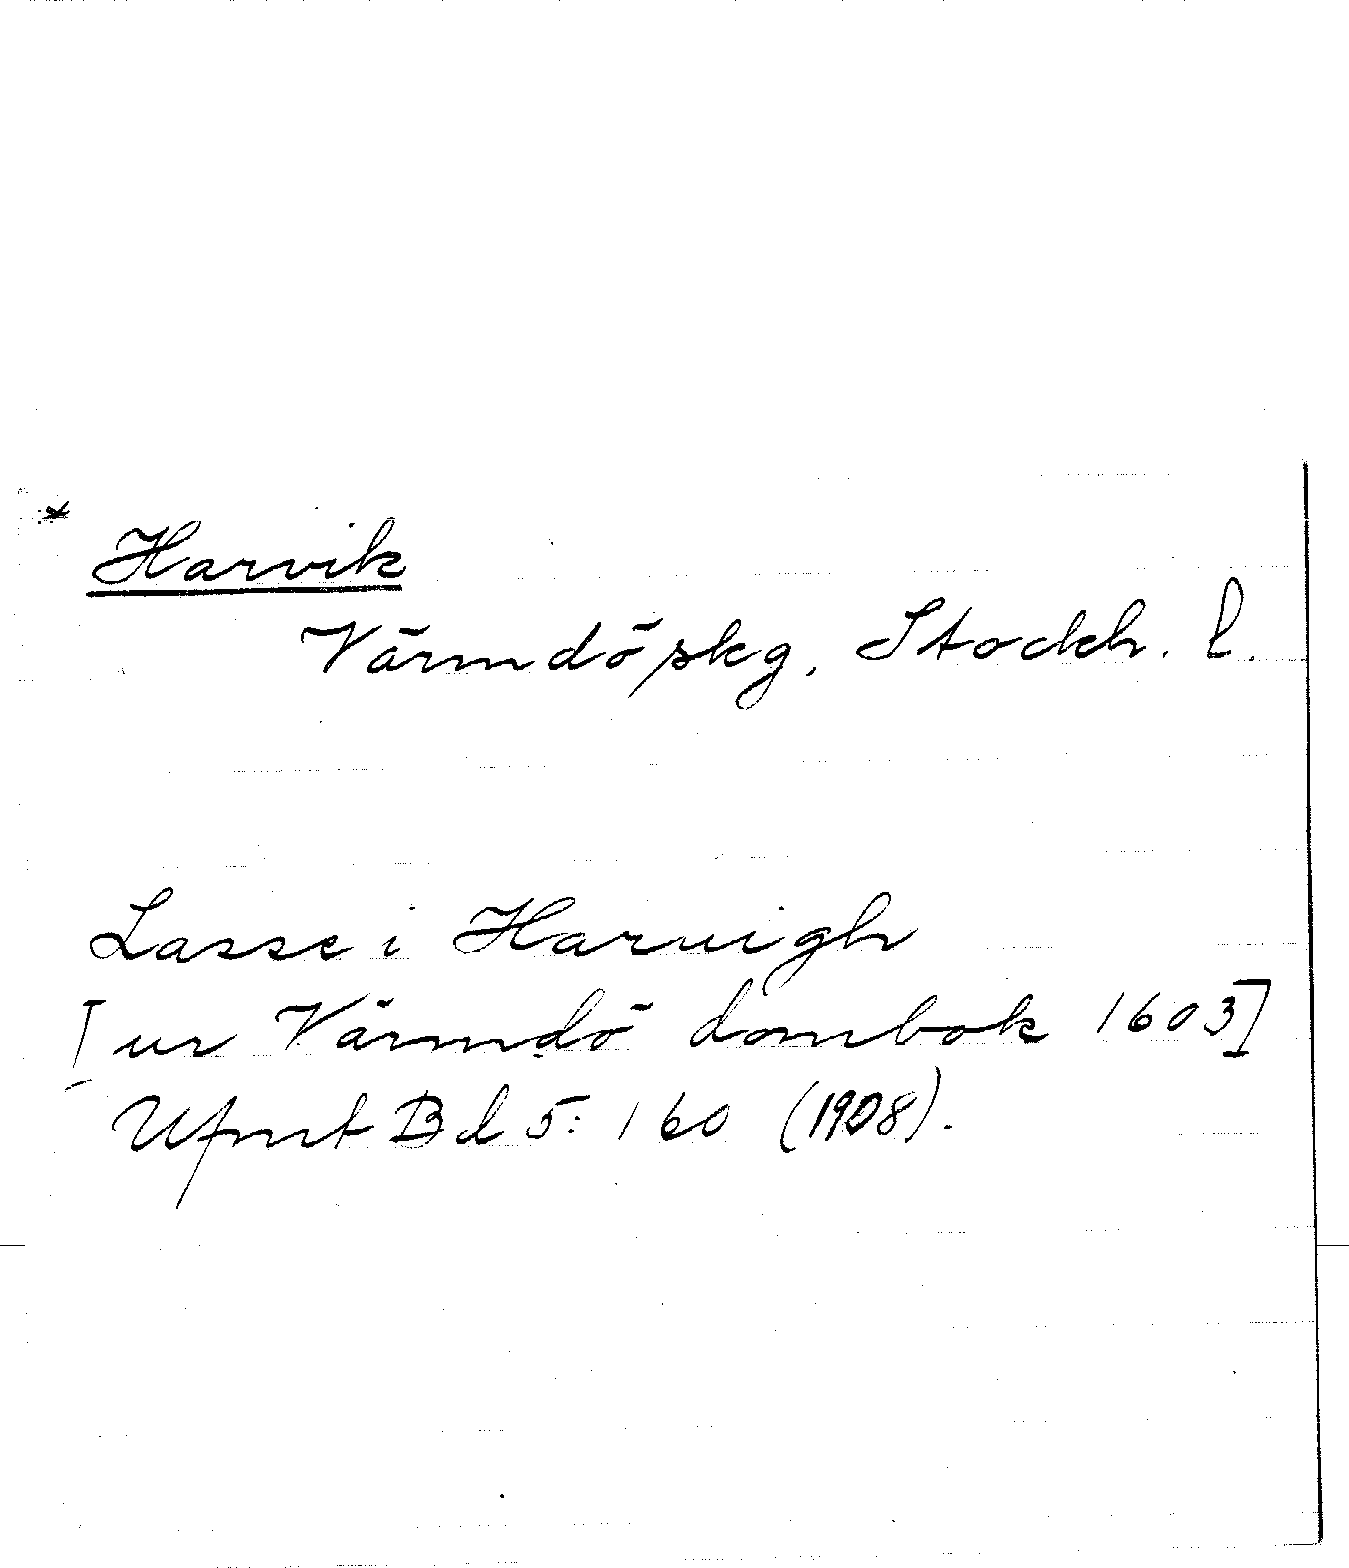 * Harvik
Värmdö skg, Stockh. l.
Lasse i Haruigh
[ur Värmdö dombok 1603]
Ufmt Bd 5: 160 (1908).